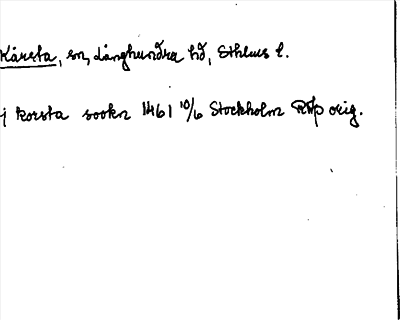 Kårsta, sn, Långhundra hd, Sthlms l.
j korsta sookn 1461 10/6 Stockholm RAp orig.